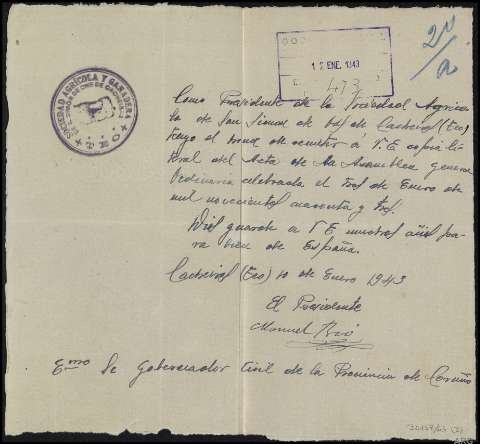 SOCIEDAD AGRÍCOLA Y GANADERA
TEO
12 ENE. 1943
473
Como Presidente de la Sociedad Agríco
la de San Simon de de Cacheiras (Teo)
tengo el honor de remitir á V.E copia li
teral del Acta de la Asamblea general
Ordinaria celebrada el tres de Enero de
mil novecientos cuarenta y tres.
Dios guarde a V E muchos años pa
ra bien de España.
Cacheiras (Teo) 10 de Enero 1943
El Presidente
Manuel
Exmo Sr Gobernador Civil de la Provincia de Coruña